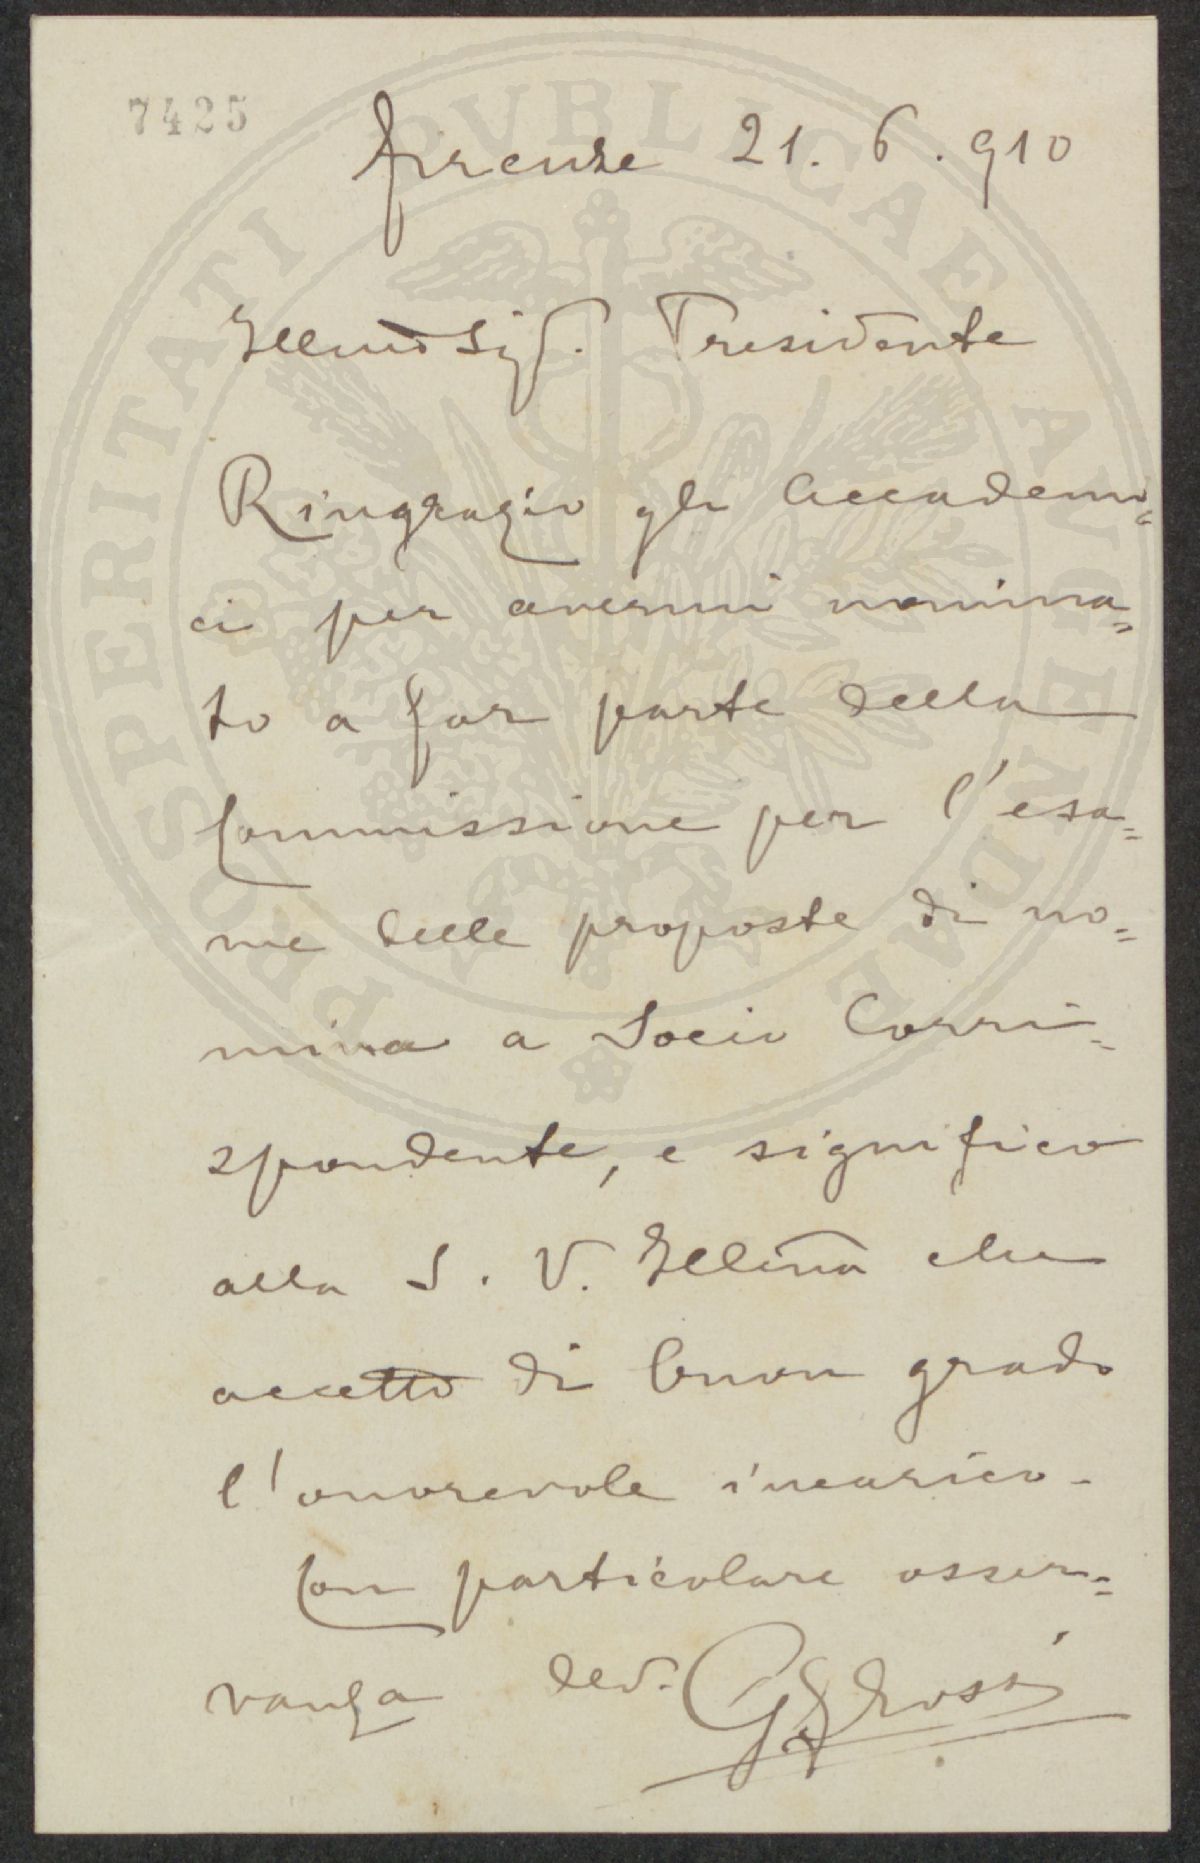 7425
Firenze 21. 6. 910
Illmo Sig. Presidente
Ringrazio gli Accademi=
ci per avermi nomina=
to a far parte della
Commissione per l'esa=
me delle proposte di no=
mina a Socio Corri=
spondente, e significo
alla S. V. Illma che
accetto di buon grado
l'onorevole incarico.
Con particolare osser=
vanza dev.
PROSPERITATI PVBLICAE AVGENDAE